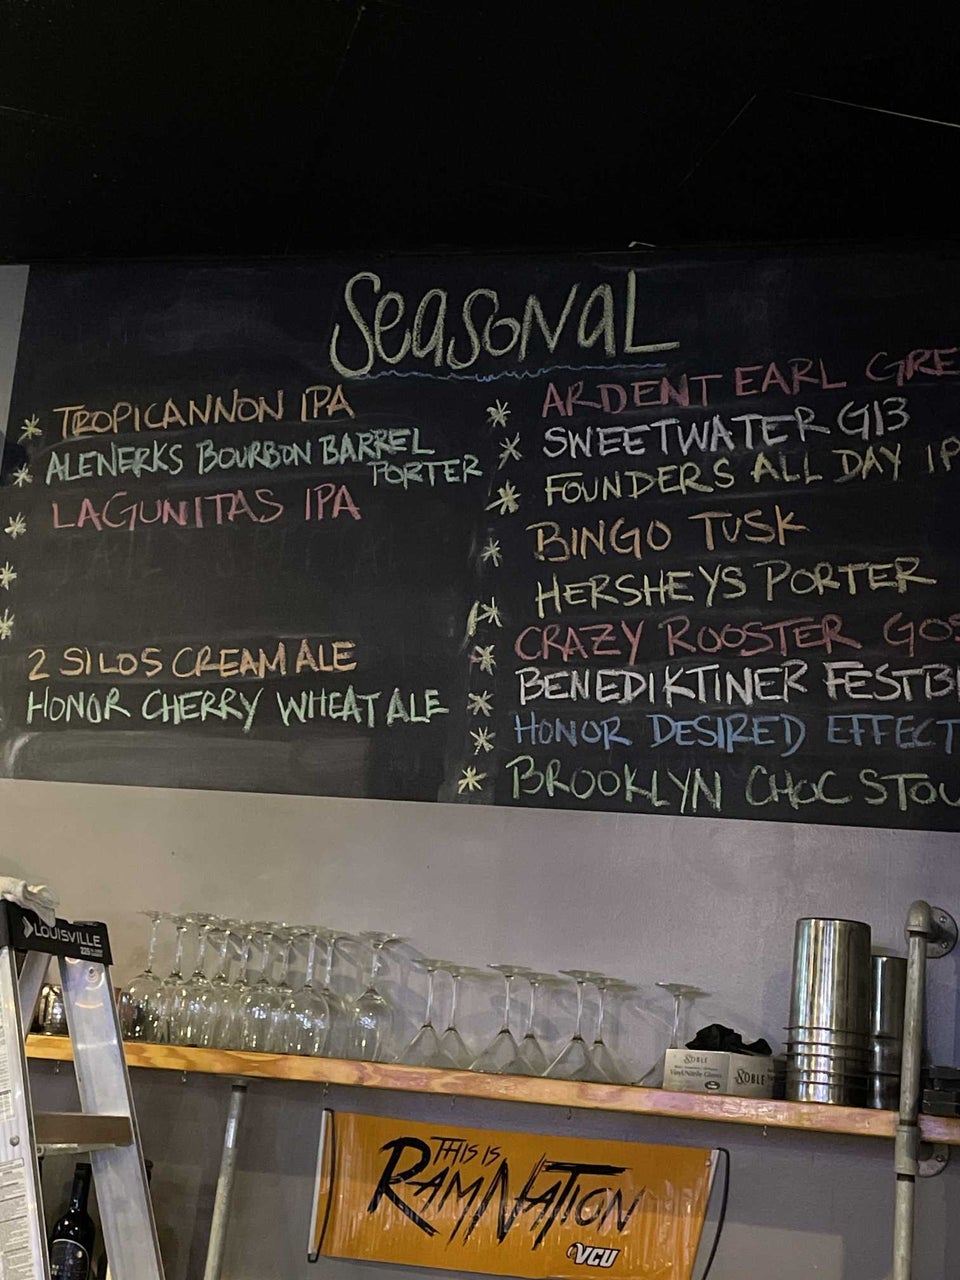 SEASONAL
TROPICANNON IPA
ALENERKS BOURBON BARREL
PORTER
LAGUNITAS IPA
2 SILOS CREAM ALE
HONOR CHERRY WHEAT ALE
ARDENT EARL GRE
SWEETWATER G13
FOUNDERS ALL DAY IP
BINGO TUSK
HERSHEYS PORTER
CRAZY ROOSTER GOS
BENEDIKTINER FESTBI
HONOR DESIRED EFFECT
BROOKLYN CHOC STOU
LOUISVILLE
NOBLE
Vinyl/Nitrile Gloves
NOBLE
THIS IS
RAMNATION
VCU